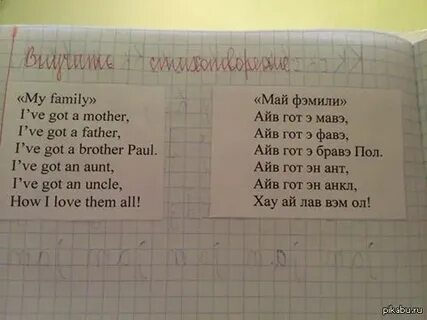 Выучить стихотворение
«My family»
I've got a mother,
I've got a father,
I've got a brother Paul.
I've got an aunt,
I've got an uncle,
How I love them all!
«Май фэмили»
Айв гот э мавэ,
Айв гот э фавэ,
Айв гот э бравэ Пол.
Айв гот эн ант,
Айв гот эн анкл,
Хау ай лав вэм ол!
pikabu.ru